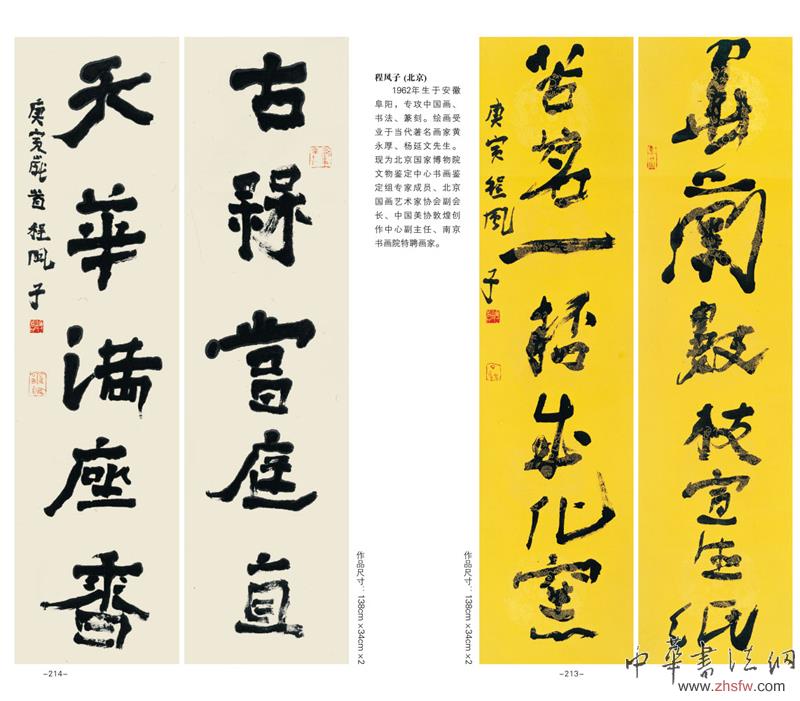 古綠當庭直
天華满座香
庚寅歲首程風子
作品尺寸：138cm×34cm×2
-214-
程风子 (北京)
1962年生于安徽
阜阳，专攻中国画、
书法、篆刻。绘画受
业于当代著名画家黄
永厚、杨延文先生。
现为北京国家博物院
文物鉴定中心书画鉴
定组专家成员、北京
国画艺术家协会副会
长、中国美协敦煌创
作中心副主任、南京
书画院特聘画家。
蘭數枝宣紙
苦茗一成化窯
庚寅程風子
作品尺寸：138cm×34cm×2
-213-
中華書法網
www.zhsfw.com